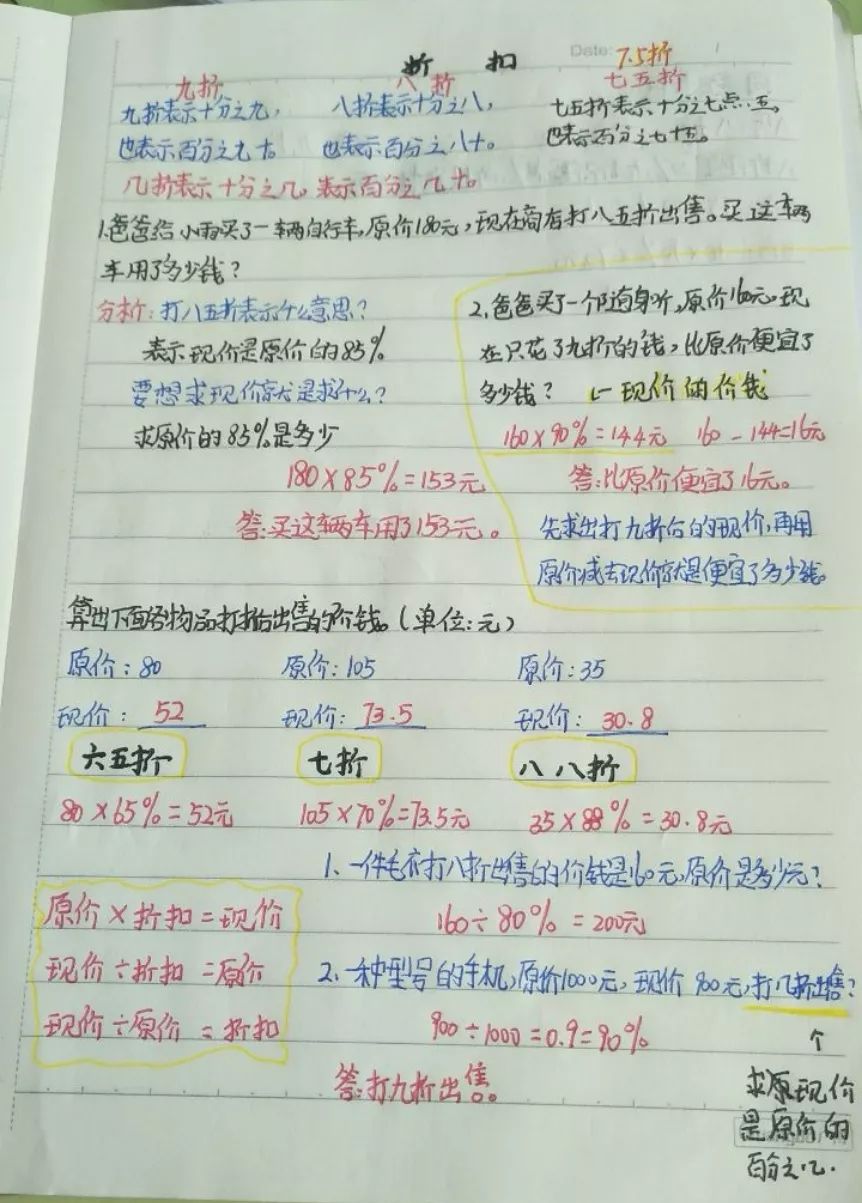 Date:
折 扣
九折 八折 7.5折
七五折
九折表示十分之九, 八折表示十分之八, 七五折表示十分之七点五,
也表示百分之九十。 也表示百分之八十。 也表示百分之七十五。
几折表示十分之几。表示百分之几十。
1.爸爸给小雨买了一辆自行车,原价180元,现在商店打八五折出售。买这辆
车用了多少钱?
分析:打八五折表示什么意思?
表示现价是原价的85%
要想求现价就是求什么?
求原价的85%是多少
180×85%=153元
答:买这辆车用了153元。
2.爸爸买了一个随身听,原价160元,现
在只花了九折的钱,比原价便宜了
多少钱? ←现价的价钱
160×90%=144元 160-144=16元
答:比原价便宜了16元。
先求出打九折后的现价,再用
原价减去现价就是便宜了多少钱。
算出下面各物品打折后出售的价钱。(单位:元)
原价:80 原价:105 原价:35
现价:52 现价:73.5 现价:30.8
六五折 七折 八八折
80×65%=52元 105×70%=73.5元 35×88%=30.8元
1、一件毛衣打八折出售的价钱是160元,原价是多少元?
160÷80%=200元
原价×折扣=现价
现价÷折扣=原价
现价÷原价=折扣
2、一种型号的手机,原价1000元,现价900元,打几折出售?
900÷1000=0.9=90%
答:打九折出售。
个
求原现价
是原价的
百分之几.